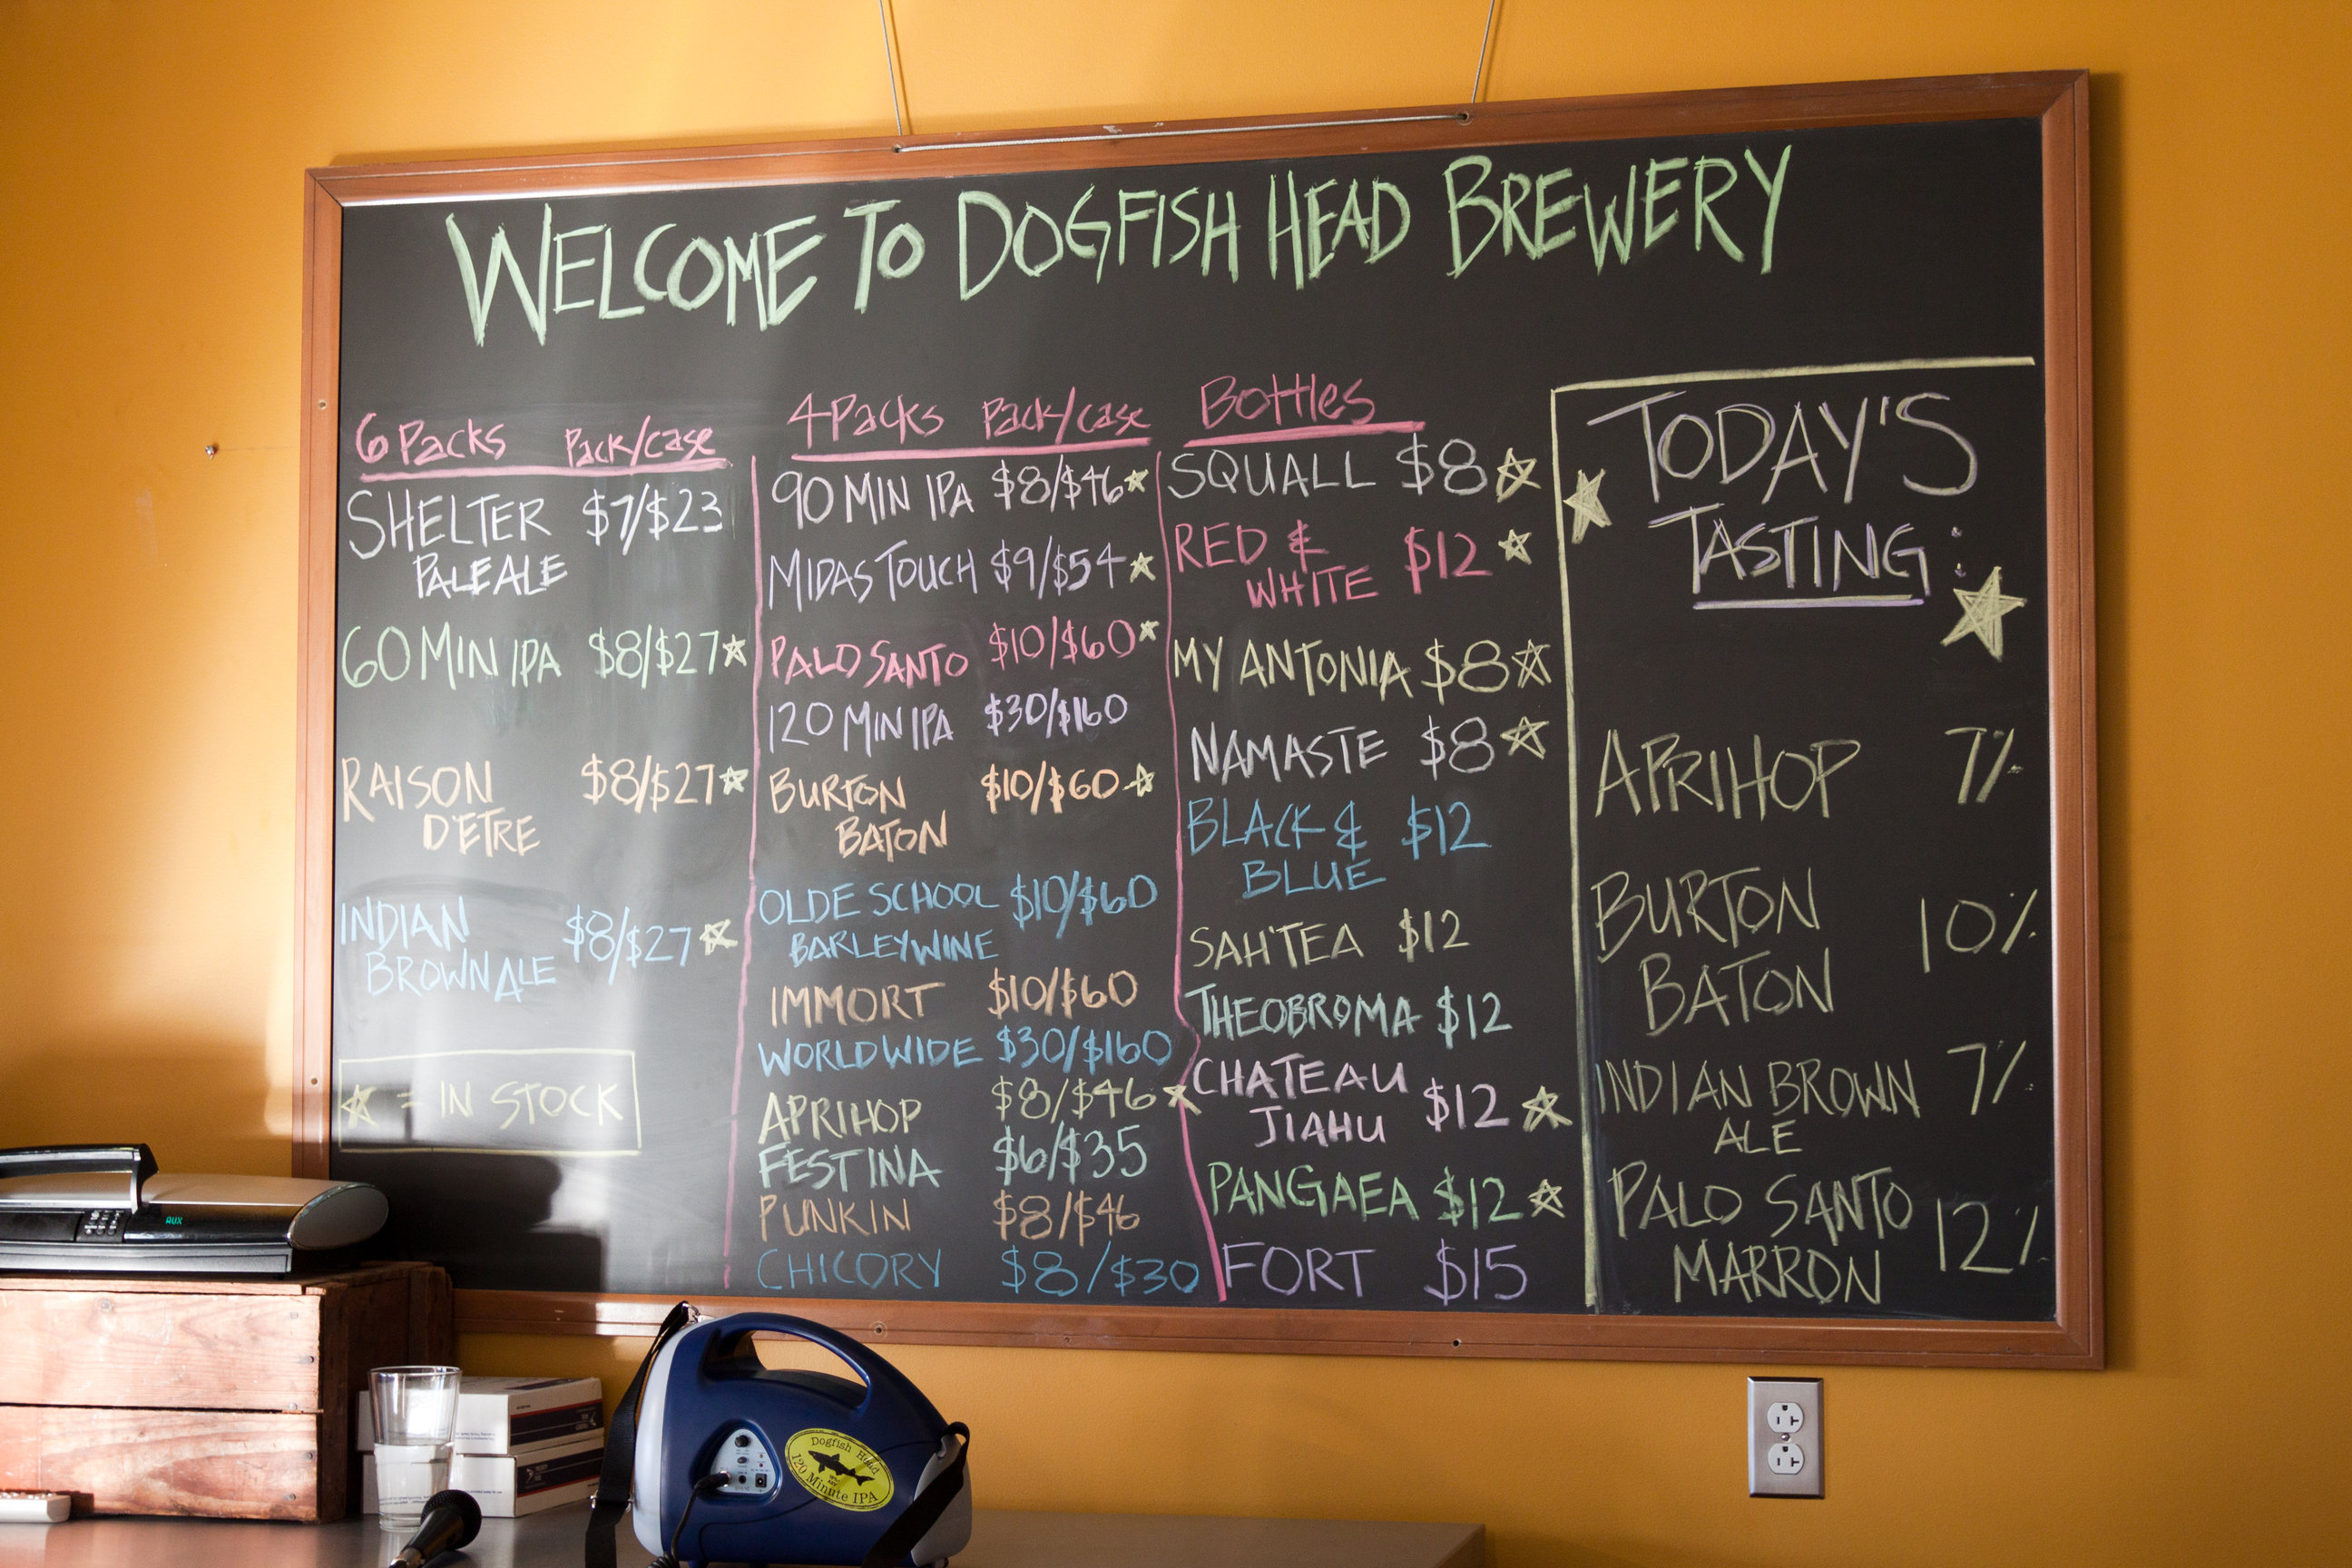 WELCOME TO DOGFISH HEAD BREWERY
6 Packs Pack/case
SHELTER $7/$23
PALE ALE
60 MIN IPA $8/$27 ☆
RAISON $8/$27 ☆
D'ETRE
INDIAN $8/$27 ☆
BROWN ALE
☆ = IN STOCK
4 Packs Pack/case
90 MIN IPA $8/$46 ☆
MIDAS TOUCH $9/$54 ☆
PALO SANTO $10/$60 ☆
120 MIN IPA $30/$160
BURTON $10/$60 ☆
BATON
OLDE SCHOOL $10/$60
BARLEYWINE
IMMORT $10/$60
WORLDWIDE $30/$160
APRIHOP $8/$46 ☆
FESTINA $6/$35
PUNKIN $8/$46
CHICORY $8/$30
Bottles
SQUALL $8 ☆
RED & $12 ☆
WHITE
MY ANTONIA $8 ☆
NAMASTE $8 ☆
BLACK & $12
BLUE
SAH'TEA $12
THEOBROMA $12
CHATEAU $12 ☆
JIAHU
PANGAEA $12 ☆
FORT $15
☆ TODAY'S
TASTING: ☆
APRIHOP 7%
BURTON 10%
BATON
INDIAN BROWN 7%
ALE
PALO SANTO 12%
MARRON
AUX
Dogfish Head
120 Minute IPA